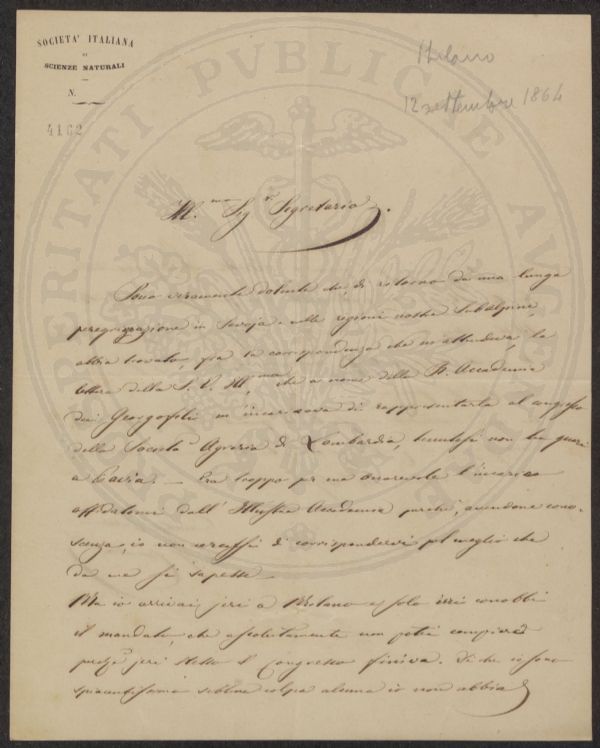 SOCIETA' ITALIANA
DI
SCIENZE NATURALI
N.
4162
Milano
12 settembre 1864
PROSPERITATI PUBLICAE AUGENDAE
M.mo Sig.r Segretario.
Sono veramente dolente che, di ritorno da una lunga
peregrinazione in Savoja e nelle regioni nostre Subalpine,
abbia trovato, fra la corrispondenza che mi attendeva, la
lettera della S. V. Ill.ma, che a nome della R. Accademia
dei Georgofili m'incaricava di rappresentarla al congresso
della Società Agraria di Lombardia, tenutosi non ha guari
a Pavia. — Era troppo per me onorevole l'incarico
affidatomi dall'Illustre Accademia perchè, avendone cono-
scenza, io non cercassi di corrispondervi pel meglio che
da me si sapesse.
Ma io arrivai jeri a Milano e solo jeri conobbi
il mandato, che assolutamente non potei compiere
jeri stesso il Congresso finiva. Di che io sono
spiacentissimo sebbene colpa alcuna io non abbia